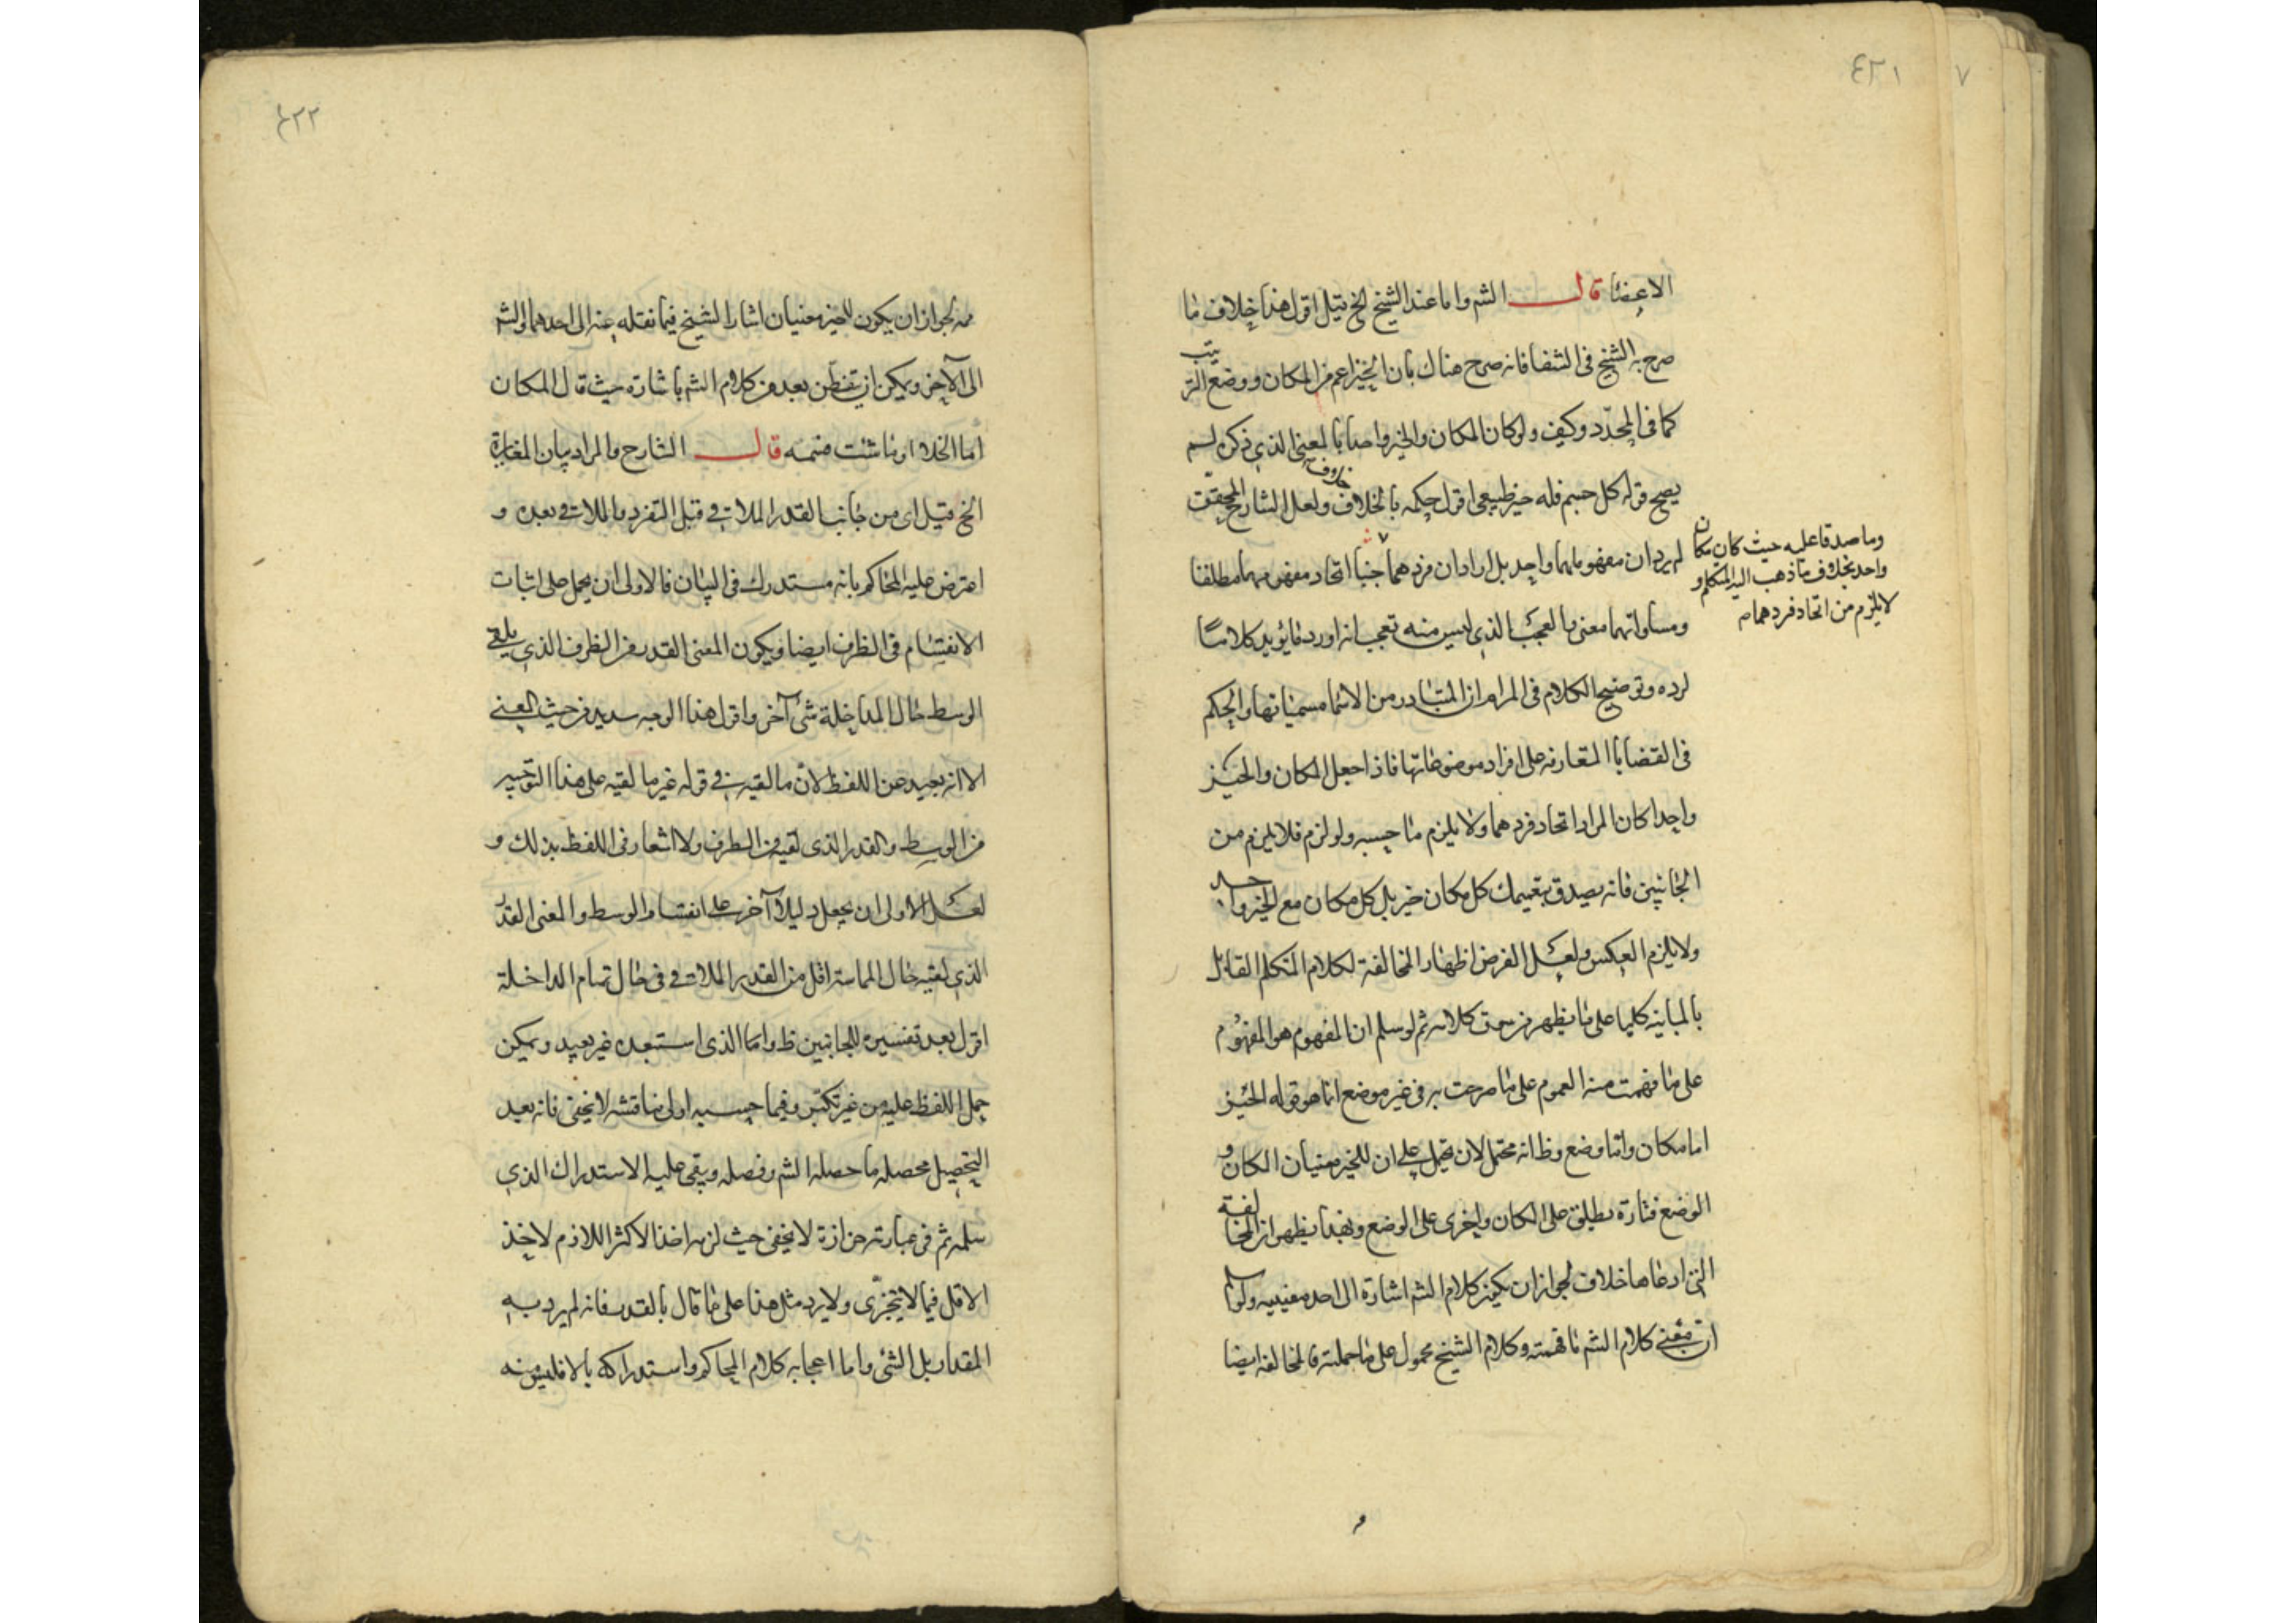 ٤٢١
٧
الاعضا قال الشم واما عند الشيخ الخ قيل اقول هذا خلاف ما
صرح به الشيخ فى الشفا فانه صرح هناك بان الحيز اعم من المكان ووضع الترتيب
كما فى المحدّد وكيف ولو كان المكان والحيز واحدا بالمعنى الذى ذكره لم
يصح قوله كل جسم فله حيز طبيعى اقول حكمه بالخلاف ولعل الشارح المحقق
لم يرد ان مفهوماهما واحد بل اراد ان فردهما اتحاد مفهومهما مطلقا
وما صدقا عليه حيث كان مكان
واحد بخلاف ما ذهب اليه المتكلم و
لا يلزم من اتحاد فردهما
ومساواتهما معنى بالعجب الذى ليس منه تعجب انه اورد ما يؤيد كلامنا
لرده وتوضيح الكلام فى المرام ان المتبادر من الاسما مسمياتها والحكم
فى القضايا المتعارفه على افراد موضوعاتها فاذا جعل المكان والحيز
واحدا كان المراد اتحاد فردهما ولا يلزم ما حسبه ولو لزم فلا يلزم من
الجانبين فانه يصدق بتعميمك كل مكان حيز بل كل مكان مع الحيز واحد
ولا يلزم العكس ولعل الغرض اظهار المخالفة لكلام المتكلم القائل
بالمباينه كليا على ما يظهر من كلامه ثم لو سلم ان المفهوم هو المفهوم
على ما فهمت منه العموم على ما صرحت به فى غير موضع انما هو قوله الحيز
اما مكان واما وضع وظ انه محتمل لان يحمل على ان للحيز معنيان المكان و
الوضع فتارة يطلق على المكان واخرى على الوضع وبهذا يظهر ان المخالفة
التى ادعاها خلاف لجواز ان يكون كلام الشم اشارة الى احد معنييه ولو سلم
ان معنى كلام الشم ما فهمته وكلام الشيخ محمول على ما حملته فالمخالفه ايضا
٤٢٢
لجواز ان يكون للحيز معنيان اشار الشيخ فيما نقله عنه الى احدهما والشم
الى الآخر ويمكن ان يتفطن بعد من كلام الشم باشارة حيث قال المكان
اما الخلا او ما شئت فسمه قال الشارح والمراد بيان المغايرة
الخ قيل اى من جانب القدر الملاقى قبل التفرد بالملاقى بعده و
اعترض عليه المحاكم بانه مستدرك فى البيان فالاولى ان يحمل على اثبات
الانقسام فى الطرف ايضا ويكون المعنى القدر من الطرف الذى يلقى
الوسط حال المداخلة شئ آخر واقول هذا الوجه سديد من حيث المعنى
الا انه بعيد عن اللفظ لان ما لقيه فى قوله غير ما لقيه على هذا التوجيه
من الوسط والقدر الذى لقيه من الطرف ولا اشعار فى اللفظ بذلك و
لعل الاولى ان يجعل دليلا آخر على انقسام الوسط والمعنى القدر
الذى لقيه حال المماسة اقل من القدر الملاقى فى حال تمام المداخلة
اقول بعد تفسيره للجانبين ظ واما الذى استبعده غير بعيد ويمكن
حمل اللفظ عليه من غير تكتى وفيما حسبه اولى مناقشه لا يخفى فانه بعيد
التحصيل محصله ما حصله الشم وفصله ويبقى عليه الاستدراك الذى
سلمه ثم فى عبارته حزازة لا يخفى حيث لزمه اخذ الاكثر اللازم لاخذ
الاقل فيما لا يتجزى ولا يرد مثل هذا على ما قال بالقدر فانه لم يرد به
المقدار بل الشئ واما اعجابه كلام المحاكم واستدراكه بالا فليس منه